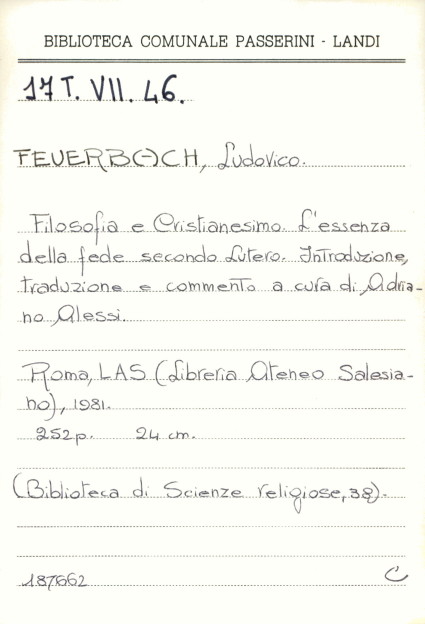 BIBLIOTECA COMUNALE PASSERINI - LANDI
17 T. VII. 46.
FEUERBACH, Ludovico.
Filosofia e Cristianesimo. L'essenza
della fede secondo Lutero. Introduzione,
traduzione e commento a cura di Adria-
no Alessi.
Roma, LAS (Libreria Ateneo Salesia-
no), 1981.
252 p. 24 cm.
(Biblioteca di Scienze religiose, 38).
187662 C